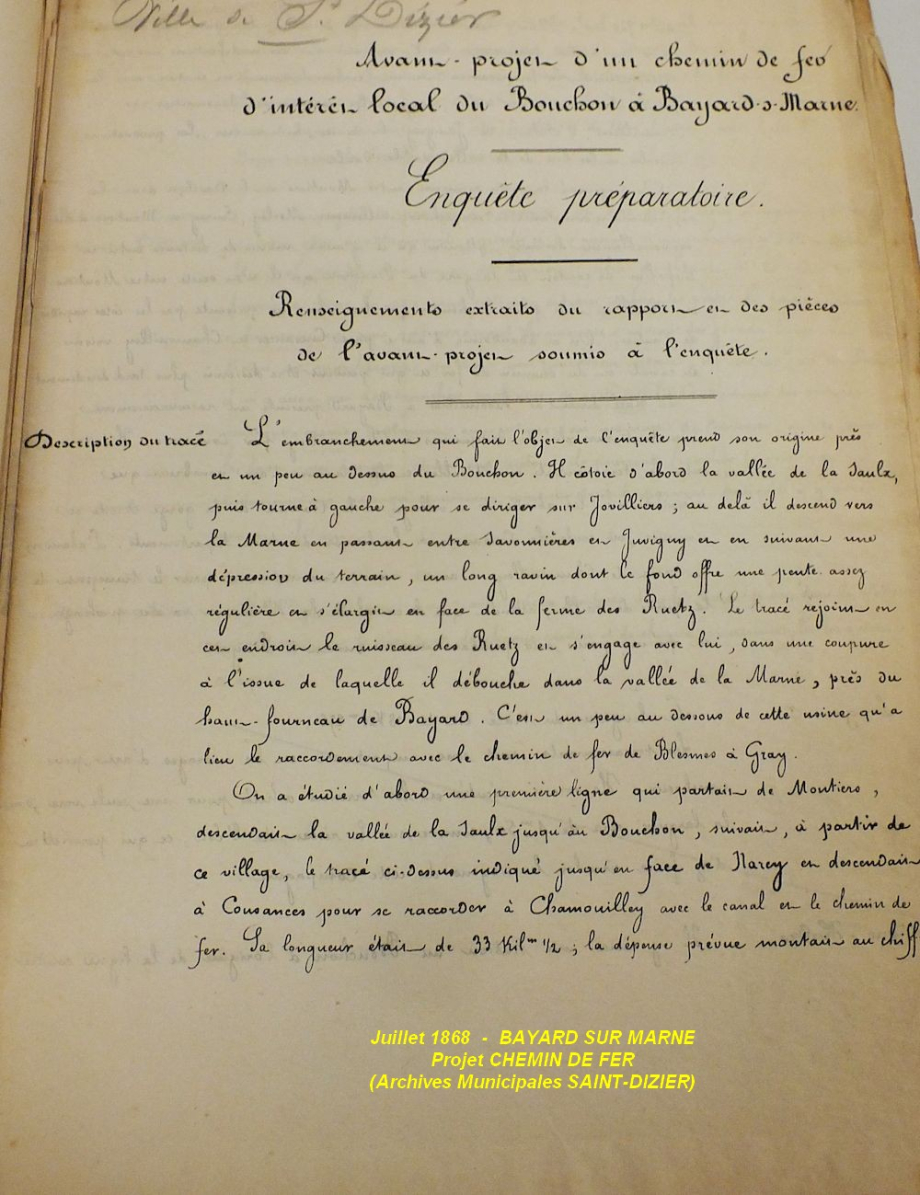 Ville de St Dizier
Avant-projet d'un chemin de fer
d'intérêt local du Bouchon à Bayard-s-Marne.
Enquête préparatoire.
Renseignements extraits du rapport et des pièces
de l'avant-projet soumis à l'enquête.
Description du tracé
L'embranchement qui fait l'objet de l'enquête prend son origine près
et un peu au dessus du Bouchon. Il côtoie d'abord la vallée de la Saulx,
puis tourne à gauche pour se diriger sur Jovilliers ; au delà il descend vers
la Marne en passant entre Savonnières et Juvigny et en suivant une
dépression du terrain, un long ravin dont le fond offre une pente assez
régulière et s'élargit en face de la ferme des Ruetz. Le tracé rejoint en
cet endroit le ruisseau des Ruetz et s'engage avec lui, dans une coupure
à l'issue de laquelle il débouche dans la vallée de la Marne, près du
haut-fourneau de Bayard. C'est un peu au dessous de cette usine qu'a
lieu le raccordement avec le chemin de fer de Blesmes à Gray.
On a étudié d'abord une première ligne qui partait de Montiers,
descendait la vallée de la Saulx jusqu'au Bouchon, suivait, à partir de
ce village, le tracé ci-dessus indiqué jusqu'en face de Narcy et descendait
à Cousances pour se raccorder à Chamouilley avec le canal et le chemin de
fer. Sa longueur était de 33 Kilm 1/2 ; la dépense prévue montait au chiff
Juillet 1868 - BAYARD SUR MARNE
Projet CHEMIN DE FER
(Archives Municipales SAINT-DIZIER)